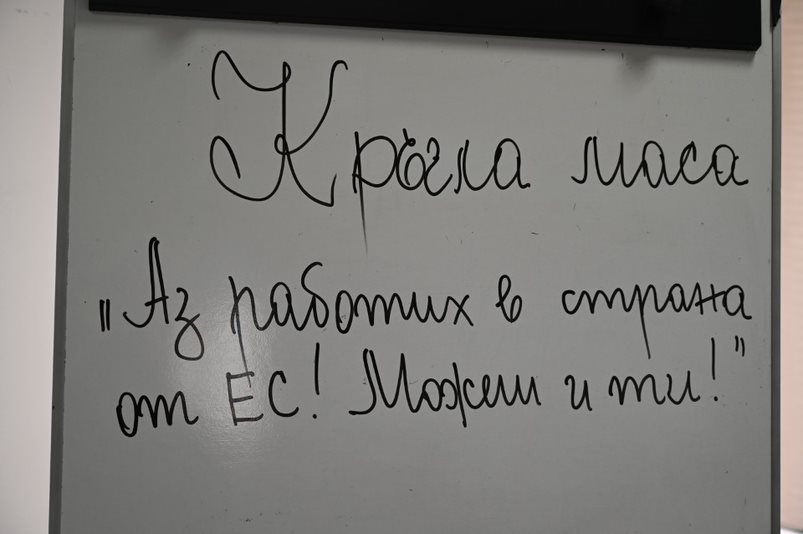 Кръгла маса
"Аз работих в страна
от ЕС! Можеш и ти!"